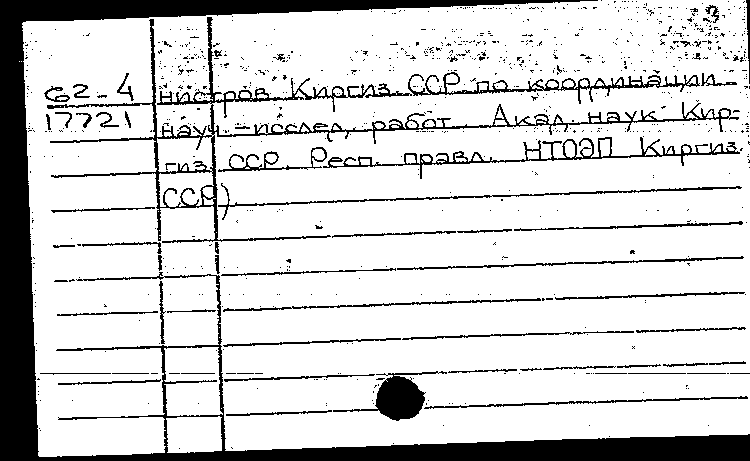 3
62-4
17721
нистров Киргиз. ССР по координации
науч.-исслед. работ. Акад. наук Кир-
гиз. ССР. Респ. правл. НТОЭП Киргиз.
ССР).